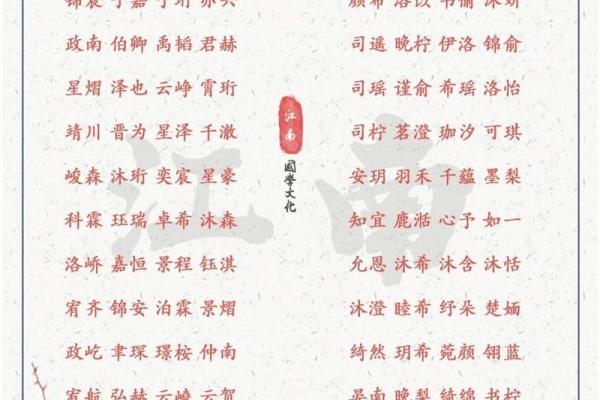 政南 伯卿 禹韬 君赫
星熠 泽也 云峥 霄珩
靖川 晋为 星泽 千澈
峻森 沐珩 奕宸 星豪
科霖 珏瑞 卓希 沐森
洛峤 嘉恒 景程 钰淇
宥齐 锦安 泊霖 景熠
政屹 聿琛 璟桉 仲南
宥航 弘赫 云峣 云贺
江南
國學文化
江南
司遥 晚柠 伊洛 锦俞
司瑶 谨俞 希瑶 洛怡
司柠 茗澄 珈汐 可琪
安玥 羽禾 千蕴 墨梨
知宜 鹿湉 心予 如一
允恩 沐希 沐含 沐恬
沐澄 睦希 纾朵 楚婳
绮然 玥希 菀颜 翎蓝
晏南 晚梨 绮绵 书柠